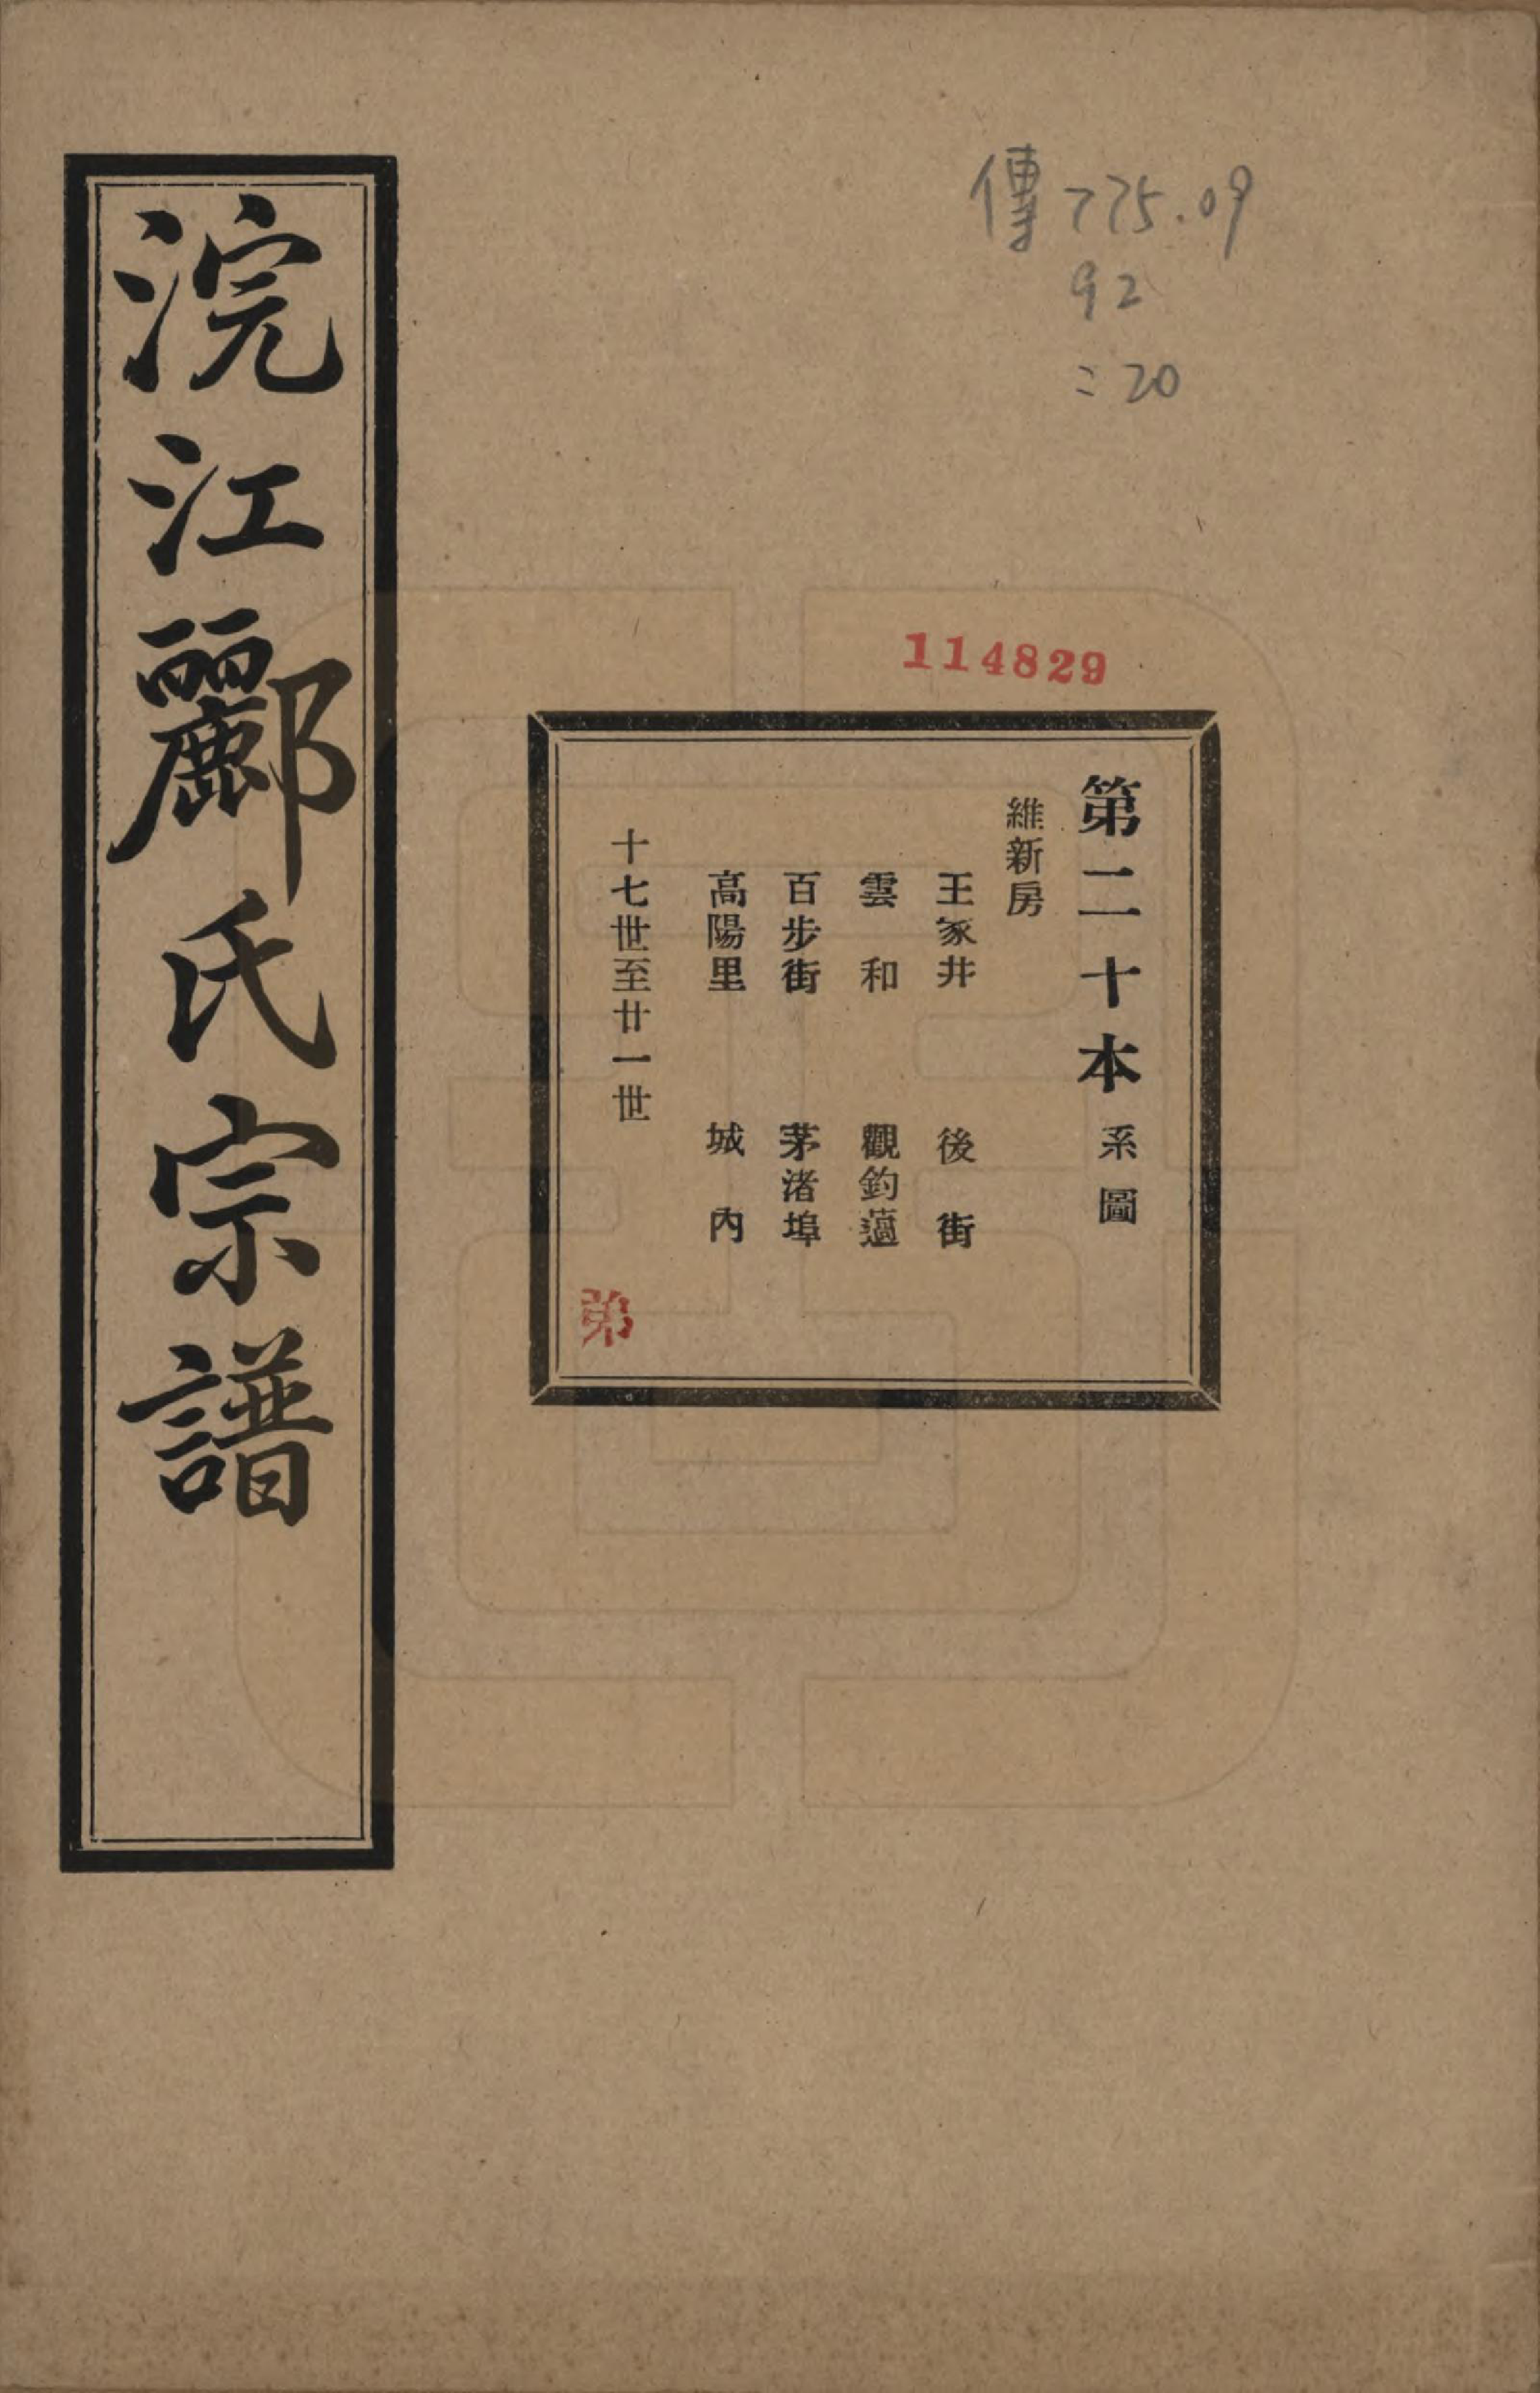 浣江酈氏宗譜
傳775.09
92
:20
114829
第二十本 系圖
維新房
王家井 後街
雲和 觀鈞
百步街 茅渚埠
高陽里 城內
十七世至廿一世
弟